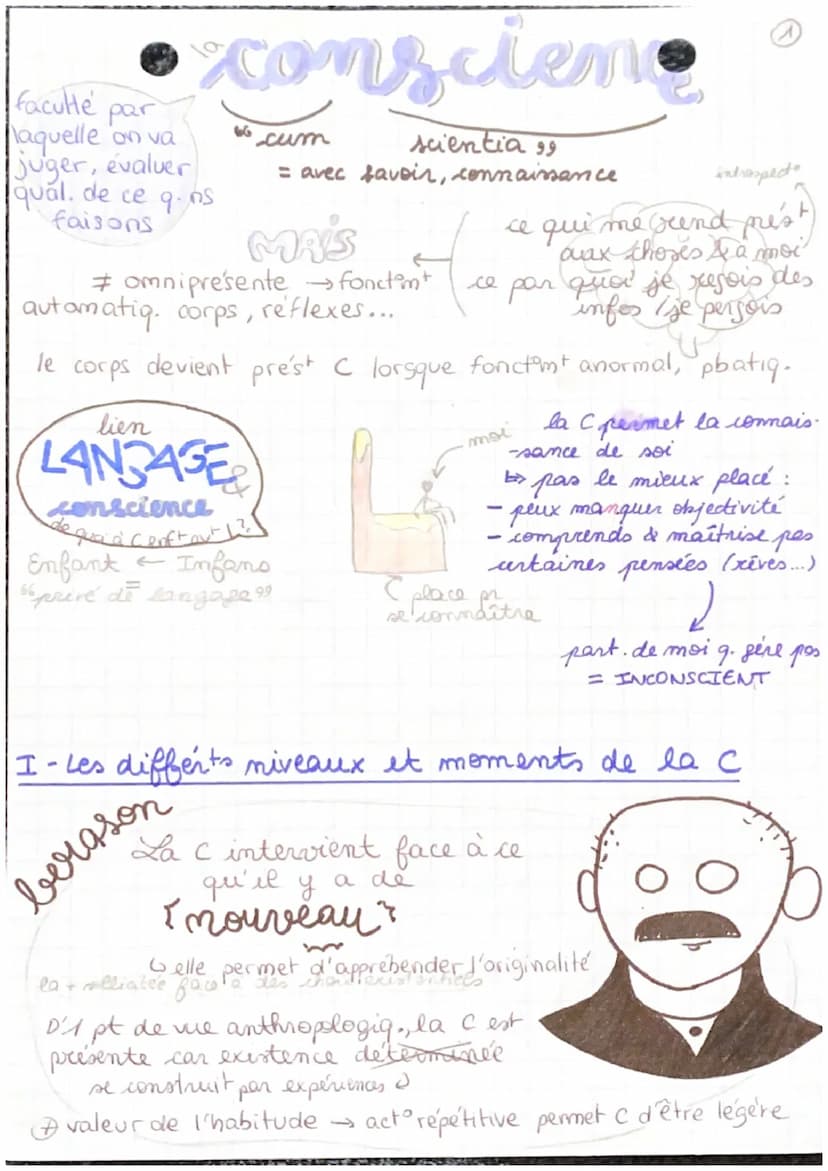 1
la conscience
faculté par
laquelle on va
juger, évaluer
qual. de ce q. ns
faisons
"cum scientia"
= avec savoir, connaissance
introspect°
ce qui me rend prés^t
aux choses & à moi
ce par quoi je reçois des
infos / je perçois
MAIS
≠ omniprésente → fonct°m^t
automatiq. corps, réflexes...
le corps devient prés^t C lorsque fonct°m^t anormal, pbatiq.
lien
LANGAGE
&
conscience
Enfant ← Infans
"privé de langage"
moi
place pr
se connaître
la C permet la connais-
-sance de soi
↳ pas le mieux placé :
- peux manquer objectivité
- comprends & maîtrise pas
certaines pensées (rêves...)
part. de moi q. gère pas
= INCONSCIENT
I - Les différ^ts niveaux et moments de la C
berason
La C intervient face à ce
qu'il y a de
nouveau
↳ elle permet d'appréhender l'originalité
D'1 pt de vue anthroplogiq., la C est
présente car existence déterminée
se construit par expériences
≠ valeur de l'habitude → act° répétitive permet C d'être légère